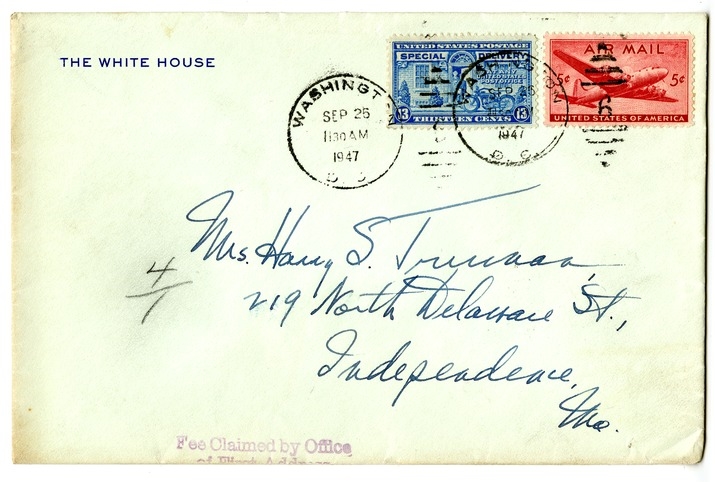 THE WHITE HOUSE
UNITED STATES POSTAGE
SPECIAL DELIVERY
AT ANY
UNITED STATES
POST OFFICE
13 THIRTEEN CENTS 13
AIR MAIL
5¢ 5¢
UNITED STATES OF AMERICA
WASHINGTON
SEP 25
11 30 AM
1947
D C
WASHINGTON
SEP 25
1947
D. C.
Mrs. Harry S. Truman
219 North Delaware St.,
Independence,
Mo.
4/1
Fee Claimed by Office
of First Address